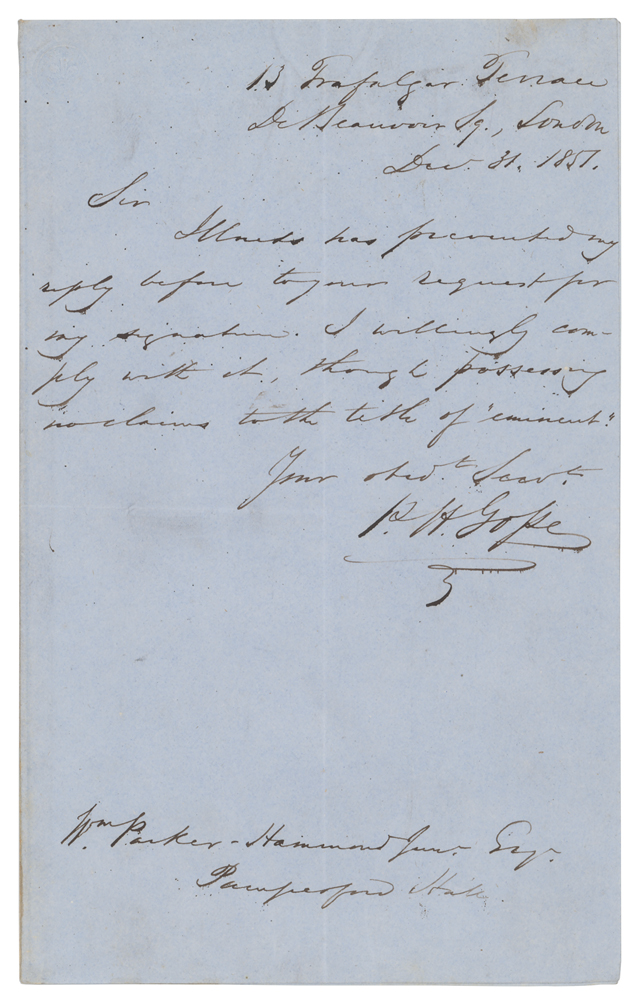 13 Trafalgar Terrace
De Beauvoir Sq., London
Dec. 31. 1851.
Sir
Illness has prevented my
reply before to your request for
my signature. I willingly com-
ply with it, though possessing
no claims to the title of "eminent".
Your obedt. Servt.
P. H. Gosse
Wm. Parker-Hammond Junr. Esqr.
Pampisford Hall